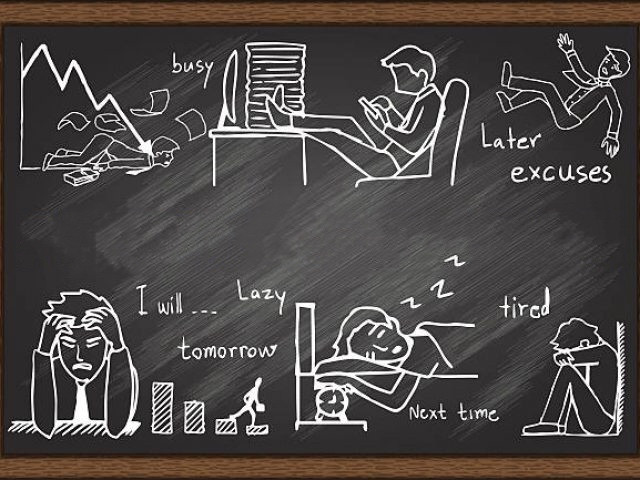 busy
Later
excuses
I will ...
Lazy
tomorrow
z z z
tired
Next time